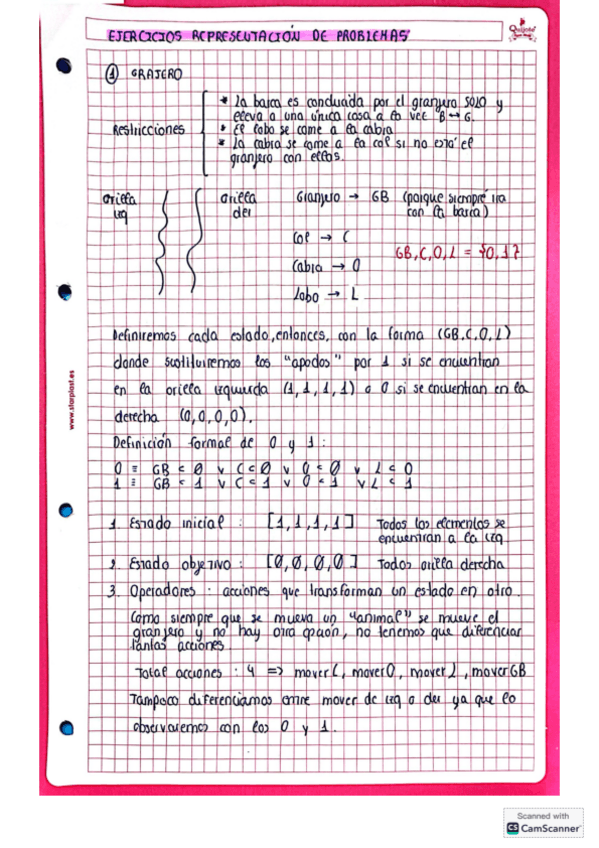 EJERCICIOS REPRESENTACIÓN DE PROBLEMAS
Quijote
① GRAJERO
Restricciones
* La barca es conducida por el granjero SOLO y
lleva a una única cosa a la vez B ↔ G.
* El lobo se come a la cabra
* La cabra se come a la col si no está el
granjero con ellos.
Orilla
izq
Orilla
der
Granjero → GB (porque siempre irá
con la barca)
Col → C
Cabra → O
Lobo → L
GB, C, O, L = {0,1}
Definiremos cada estado, entonces, con la forma (GB, C, O, L)
donde sustituiremos los "apodos" por 1 si se encuentran
en la orilla izquierda (1,1,1,1) o 0 si se encuentran en la
derecha (0,0,0,0).
Definición formal de 0 y 1:
0 ≡ GB < 0 v C < 0 v O < 0 v L < 0
1 ≡ GB < 1 v C < 1 v O < 1 v L < 1
1. Estado inicial : [1,1,1,1] Todos los elementos se
encuentran a la izq.
2. Estado objetivo : [0,0,0,0] Todos orilla derecha
3. Operadores : acciones que transforman un estado en otro.
Como siempre que se mueva un "animal" se mueve el
granjero y no hay otra opción, no tenemos que diferenciar
tantas acciones.
Total acciones : 4 => mover C, mover O, mover L, mover GB
Tampoco diferenciamos entre mover de izq a der ya que lo
observaremos con los 0 y 1.
www.starplast.es
Scanned with
CS CamScanner